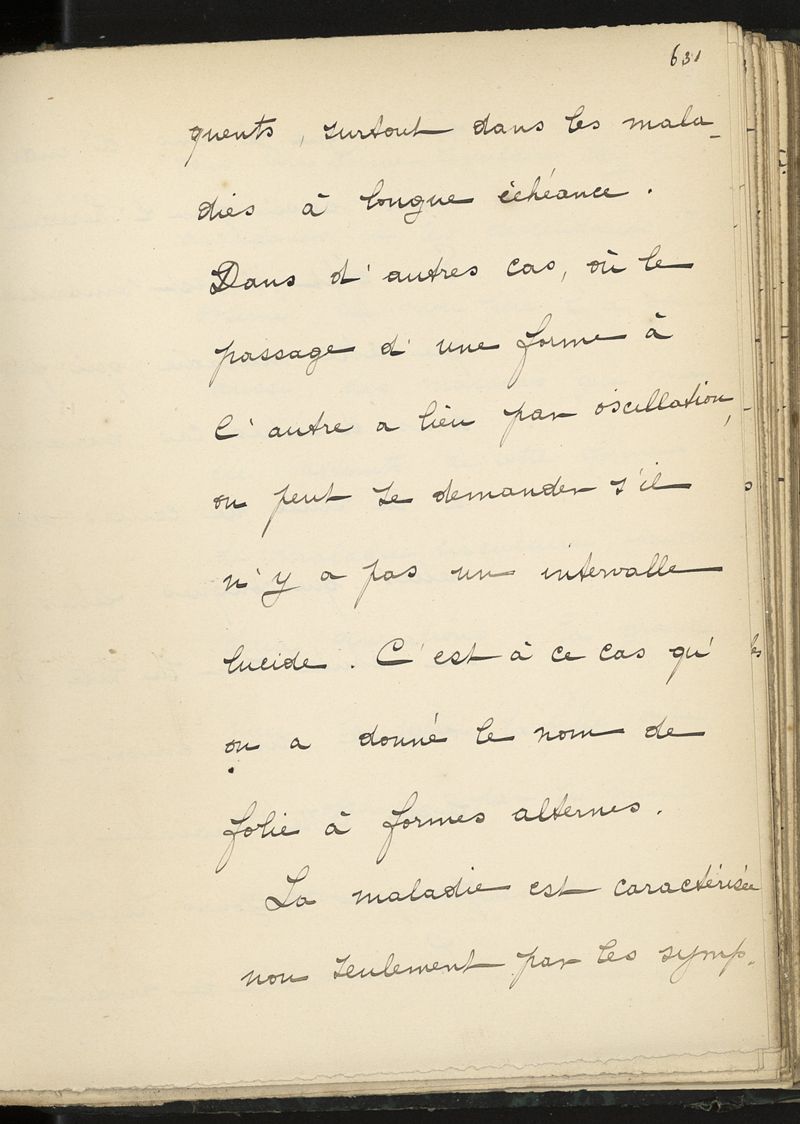 631
quents, surtout dans les mala-
dies à longue échéance.
Dans d'autres cas, où le
passage d'une forme à
l'autre a lieu par oscillation,
on peut se demander s'il
n'y a pas un intervalle
lucide. C'est à ce cas qu'
on a donné le nom de
folie à formes alternes.
La maladie est caractérisée
non seulement par les symp-